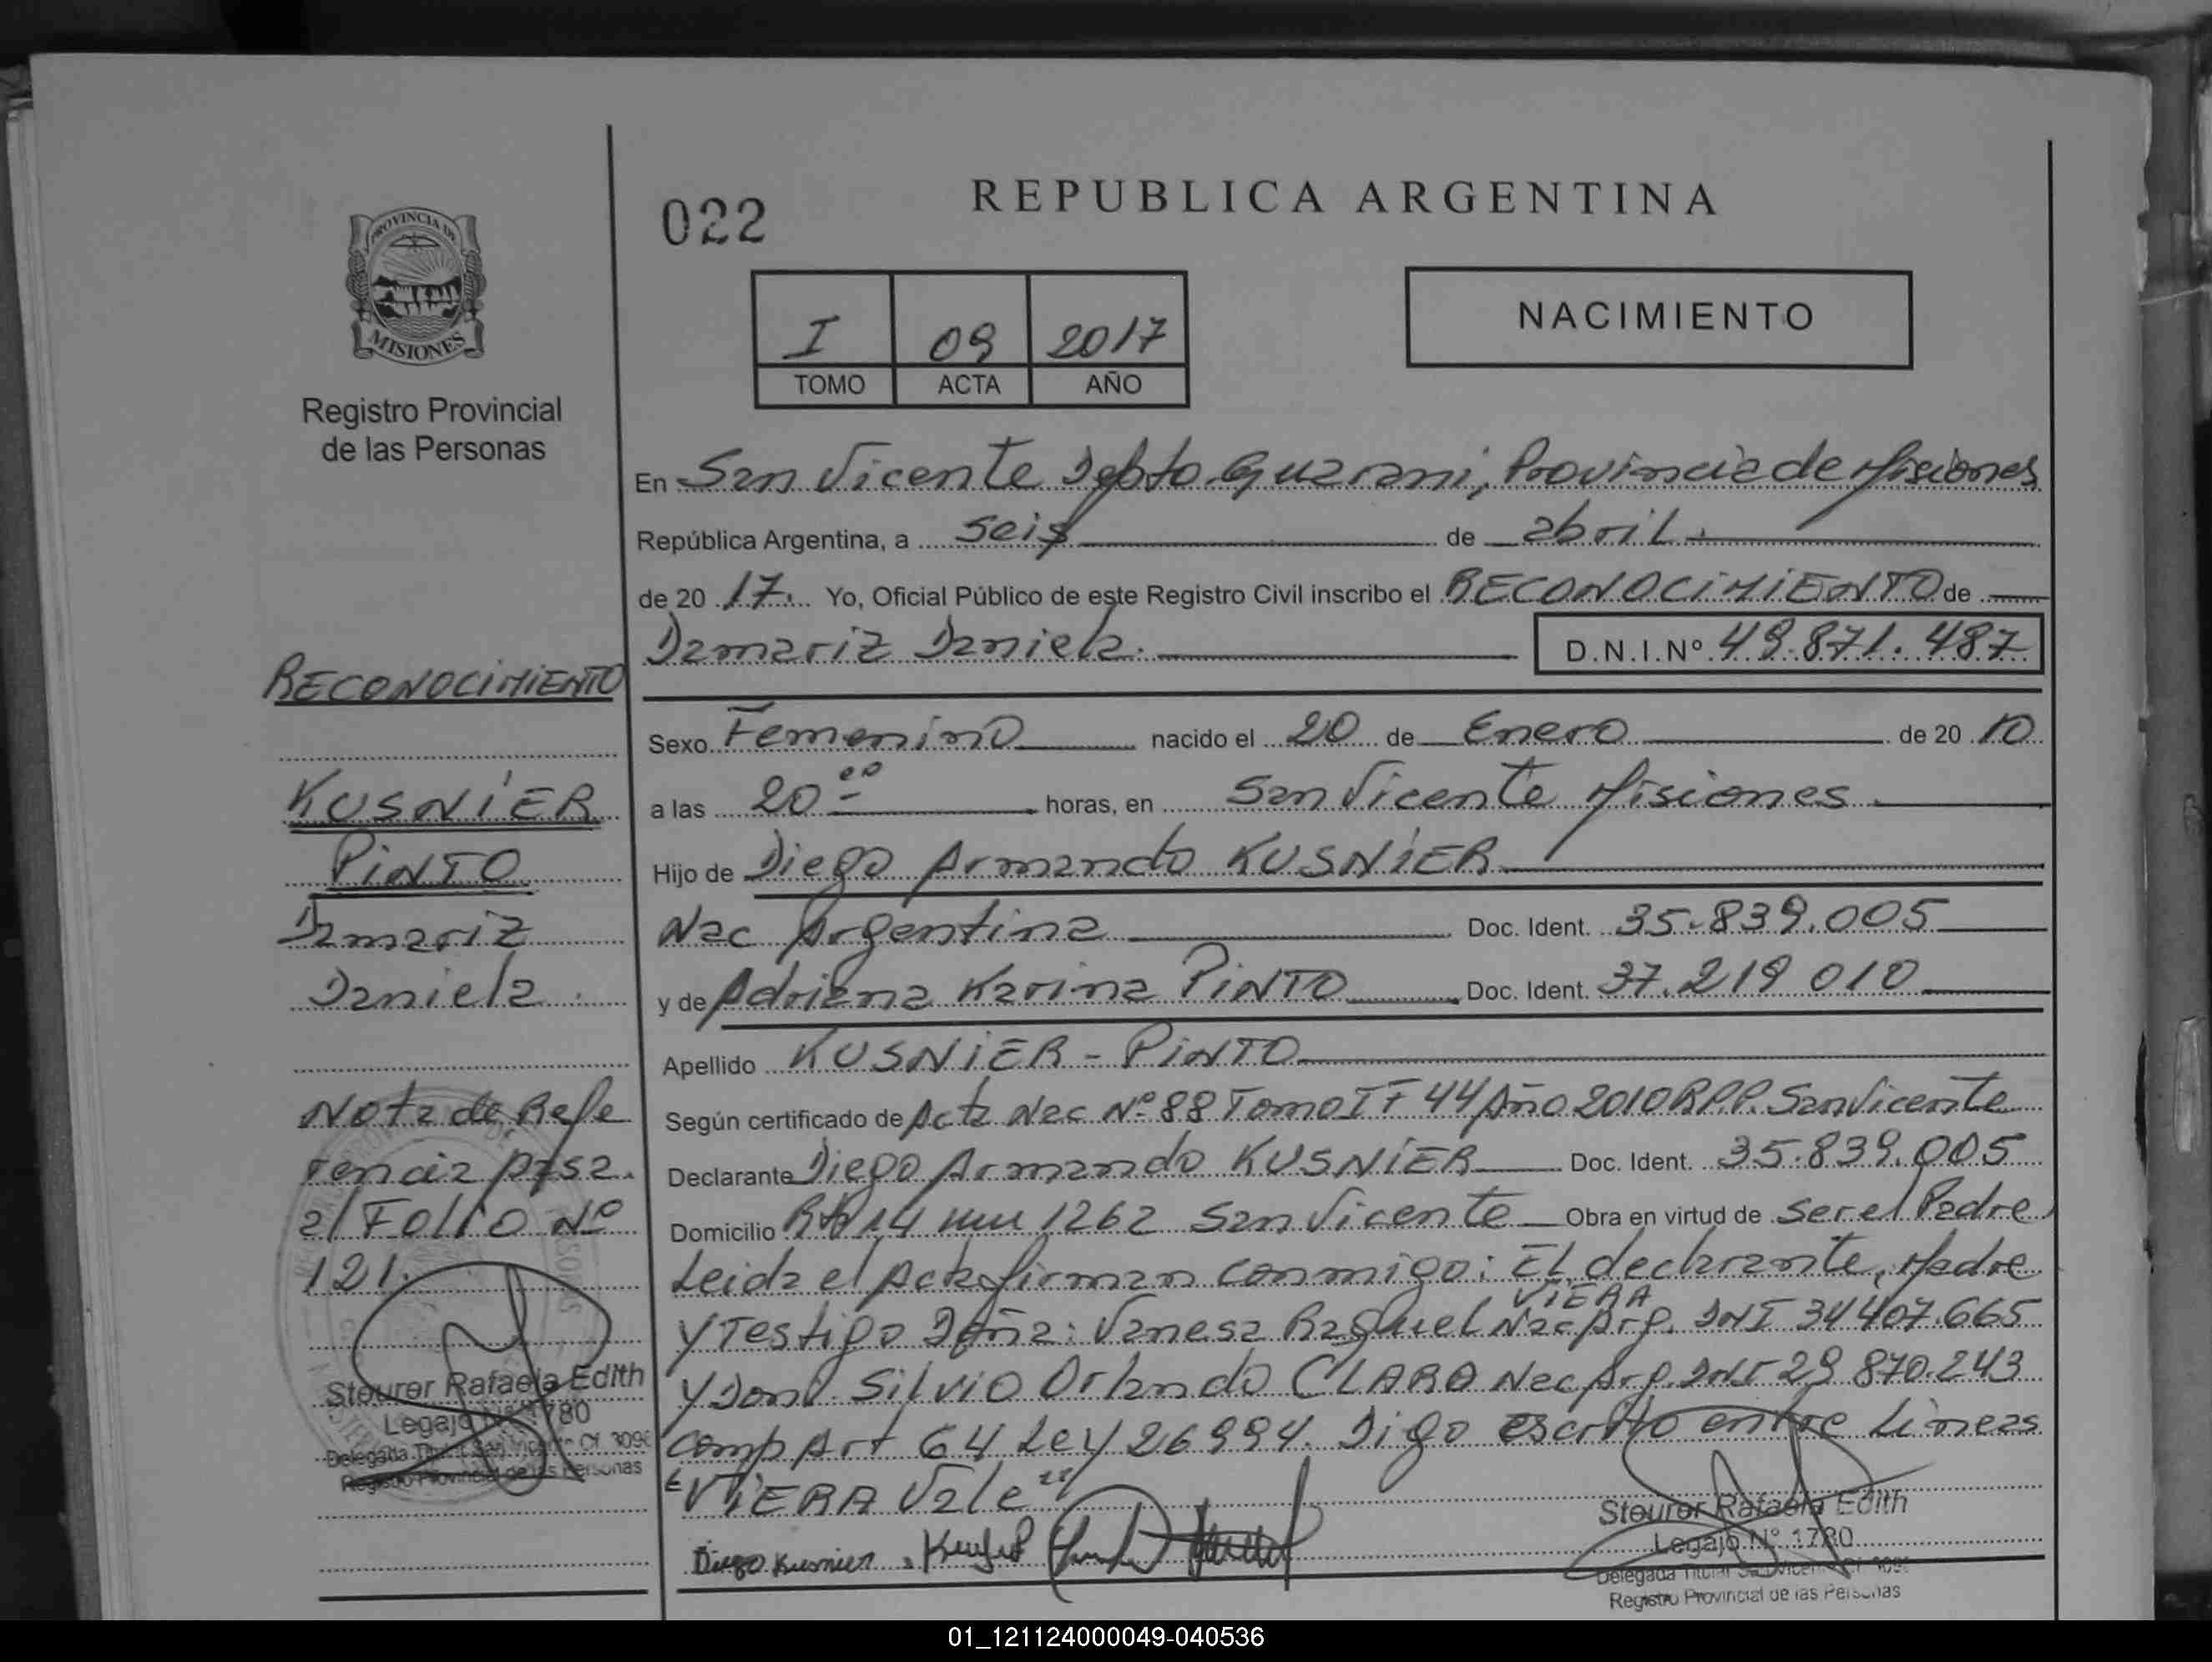 022
REPUBLICA ARGENTINA
PROVINCIA DE
MISIONES
Registro Provincial
de las Personas
I 09 2017
TOMO ACTA AÑO
NACIMIENTO
En San Vicente Depto Guarani, Provincia de Misiones
República Argentina, a seis de abril.
de 20 17. Yo, Oficial Público de este Registro Civil inscribo el RECONOCIMIENTO de
Damariz Daniela. D.N.I.Nº 49.871.487
Sexo Femenino nacido el 20 de Enero de 20 10
a las 20 00 horas, en San Vicente Misiones
Hijo de Diego Armando KUSNIER
Nac Argentina Doc. Ident. 35.839.005
y de Adriana Karina PINTO Doc. Ident. 37.219 010
Apellido KUSNIER - PINTO
Según certificado de Acta Nac Nº 88 Tomo I F 44 Año 2010 R.P.P. San Vicente
Declarante Diego Armando KUSNIER Doc. Ident. 35.839.005
Domicilio 14 1262 San Vicente Obra en virtud de ser el Padre
Leida el Acta firman conmigo: El declarante, Madre
VIERA
Y Testigo Doña: Vanesa Raquel Nac Arg. DNI 34 407.665
Y Don Silvio Orlando CLARO Nac Arg. DNI 29 870.243
comp Art 64 Ley 26994. Digo escrito entre Lineas
"VIERA Vale"
Diego Kusnier
Steurer Rafaela Edith
Legajo Nº 1780
Delegada Titular San Vicente
Registro Provincial de las Personas
RECONOCIMIENTO
KUSNIER
PINTO
Damariz
Daniela.
Nota de Refe
rencia pasa.
al Folio Nº
121.
Steurer Rafaela Edith
Legajo Nº 1780
Delegada Titular San Vicente Of. 309
Registro Provincial de las Personas
01_121124000049-040536